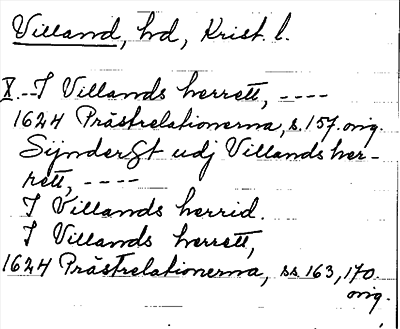 Villand, hd, Krist. l.
X.--I Villands herrett, ----
1624 Prästrelationerna, s. 157. orig.
Synderst udj Villands her-
rett, ----
I Villands herrid.
I Villands herrett,
1624 Prästrelationerna, ss. 163, 170.
orig.